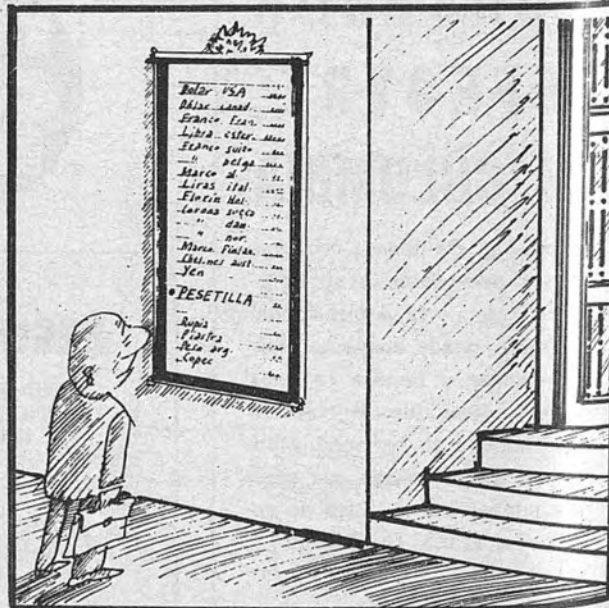 Dolar USA
Dolar canad.
Franco Fran.
Libra ester.
Franco suizo
" belga
Marco al.
Liras ital.
Florin Hol.
Corona sueca
" dan.
" nor.
Marco Finlan.
Chelines aust.
Yen
• PESETILLA
Rupia
Piastra
Peso arg.
Copec